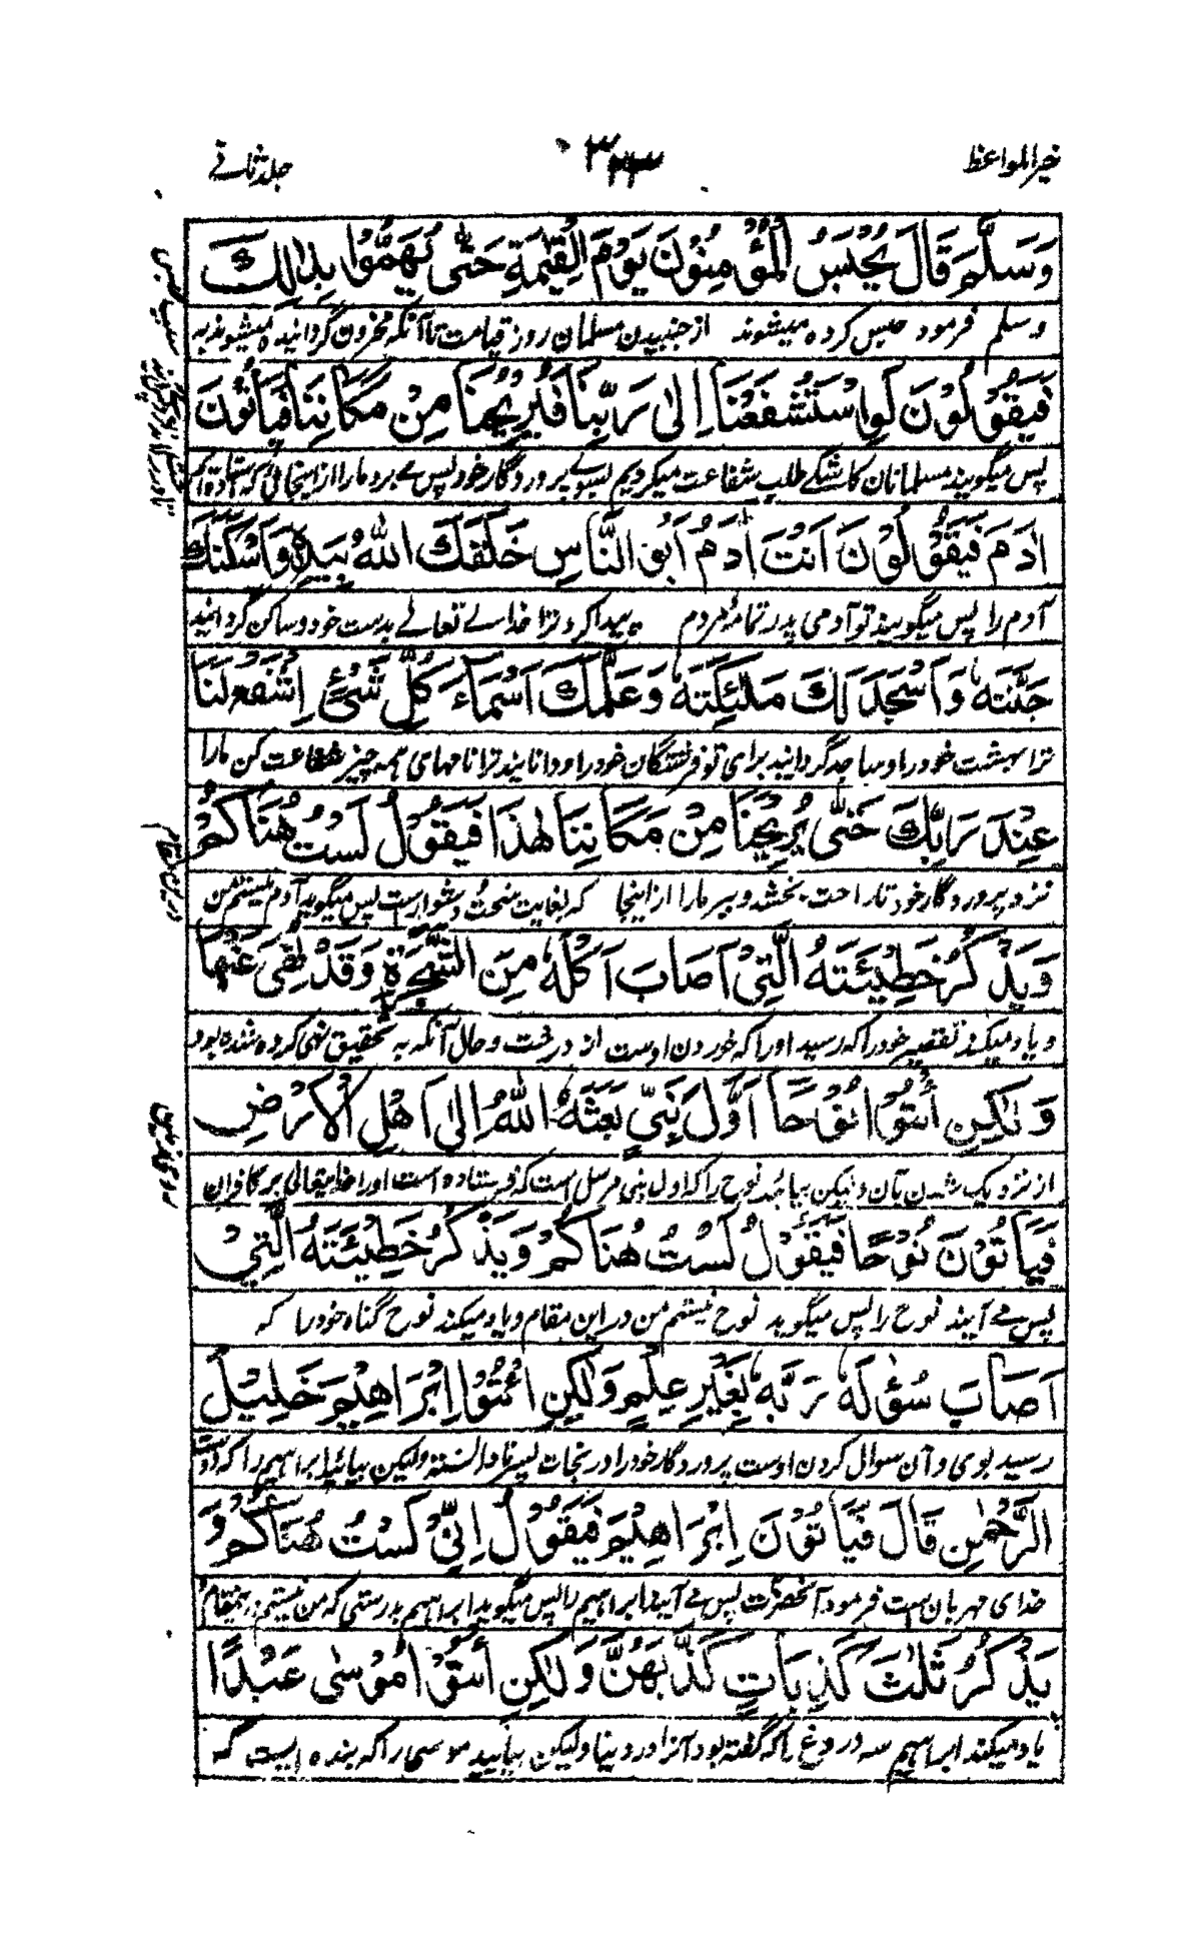 خیر المواعظ
۳۴۳
جلد ثانے
وَسَلَّمَ قَالَ يُحْبَسُ الْمُؤْمِنُوْنَ يَوْمَ الْقِيٰمَةِ حَتّٰى يُهَمُّوْا بِذٰلِكَ
وسلم فرمود حبس کرده میشوند از جنبیدن مسلمانان روز قیامت تا آنکه محزون گردانیده میشوند به
فَيَقُوْلُوْنَ لَوِاسْتَشْفَعْنَا اِلٰى رَبِّنَا فَيُرِيْحُنَا مِنْ مَكَانِنَا فَيَأْتُوْنَ
پس میگویند مسلمانان کاشکے طلب شفاعت میکردیم بسوے پروردگار خود پس مے برد مارا از اینجائی که
اٰدَمَ فَيَقُوْلُوْنَ اَنْتَ اٰدَمُ اَبُو النَّاسِ خَلَقَكَ اللّٰهُ بِيَدِهٖ وَاَسْكَنَكَ
آدم را پس میگویند تو آدمی پدر تمامه مردم پیدا کرد ترا خداے تعالے بدست خود و ساکن گردانید
جَنَّتَهٗ وَاَسْجَدَ لَكَ مَلٰئِكَتَهٗ وَعَلَّمَكَ اَسْمَاءَ كُلِّ شَىْءٍ اِشْفَعْ لَنَا
ترا بهشت خود را و ساجد گردانید برای تو فرشتگان خود را و دانانید ترا نامهای همه چیز شفاعت کن مارا
عِنْدَ رَبِّكَ حَتّٰى يُرِيْحَنَا مِنْ مَكَانِنَا هٰذَا فَيَقُوْلُ لَسْتُ هُنَاكُمْ
نزد پروردگار خود تا راحت بخشد و ببرد مارا از اینجا که بغایت سخت و دشوار است پس میگوید آدم نیستم من
وَيَذْكُرُ خَطِيْئَتَهُ الَّتِىْ اَصَابَ اَكْلَهٗ مِنَ الشَّجَرَةِ وَقَدْ نُهِىَ عَنْهَا
و یاد میکند تقصیر خود را که رسید او را که خوردن اوست از درخت و حال آنکه به تحقیق نهی کرده شده بود
وَلٰكِنِ ائْتُوْا نُوْحًا اَوَّلَ نَبِىٍّ بَعَثَهُ اللّٰهُ اِلٰى اَهْلِ الْاَرْضِ
از نزدیک شدن بآن ولیکن بیائید نوح را که اول نبی مرسل است که فرستاده است او را خدایتعالی بر کافران
فَيَأْتُوْنَ نُوْحًا فَيَقُوْلُ لَسْتُ هُنَاكُمْ وَيَذْكُرُ خَطِيْئَتَهُ الَّتِىْ
پس مے آیند نوح را پس میگوید نوح نیستم من در این مقام و یاد میکند نوح گناه خود را که
اَصَابَ سُؤْلَهٗ رَبَّهٗ بِغَيْرِ عِلْمٍ وَلٰكِنِ ائْتُوْا اِبْرَاهِيْمَ خَلِيْلَ
رسید بوی و آن سوال کردن اوست پروردگار خود را در نجات پسر نادانسته ولیکن بیائید ابراهیم را که دوست
الرَّحْمٰنِ قَالَ فَيَأْتُوْنَ اِبْرَاهِيْمَ فَيَقُوْلُ اِنِّىْ لَسْتُ هُنَاكُمْ وَ
خدای مهربان ست فرمود آنحضرت پس مے آیند ابراهیم را پس میگوید ابراهیم بدرستی که من نیستم
يَذْكُرُ ثَلٰثَ كَذِبَاتٍ كَذَبَهُنَّ وَلٰكِنِ ائْتُوْا مُوْسٰى عَبْدًا
یاد میکند ابراهیم سه دروغ را که گفته بود آنرا در دنیا ولیکن بیائید موسی را که بنده ایست که